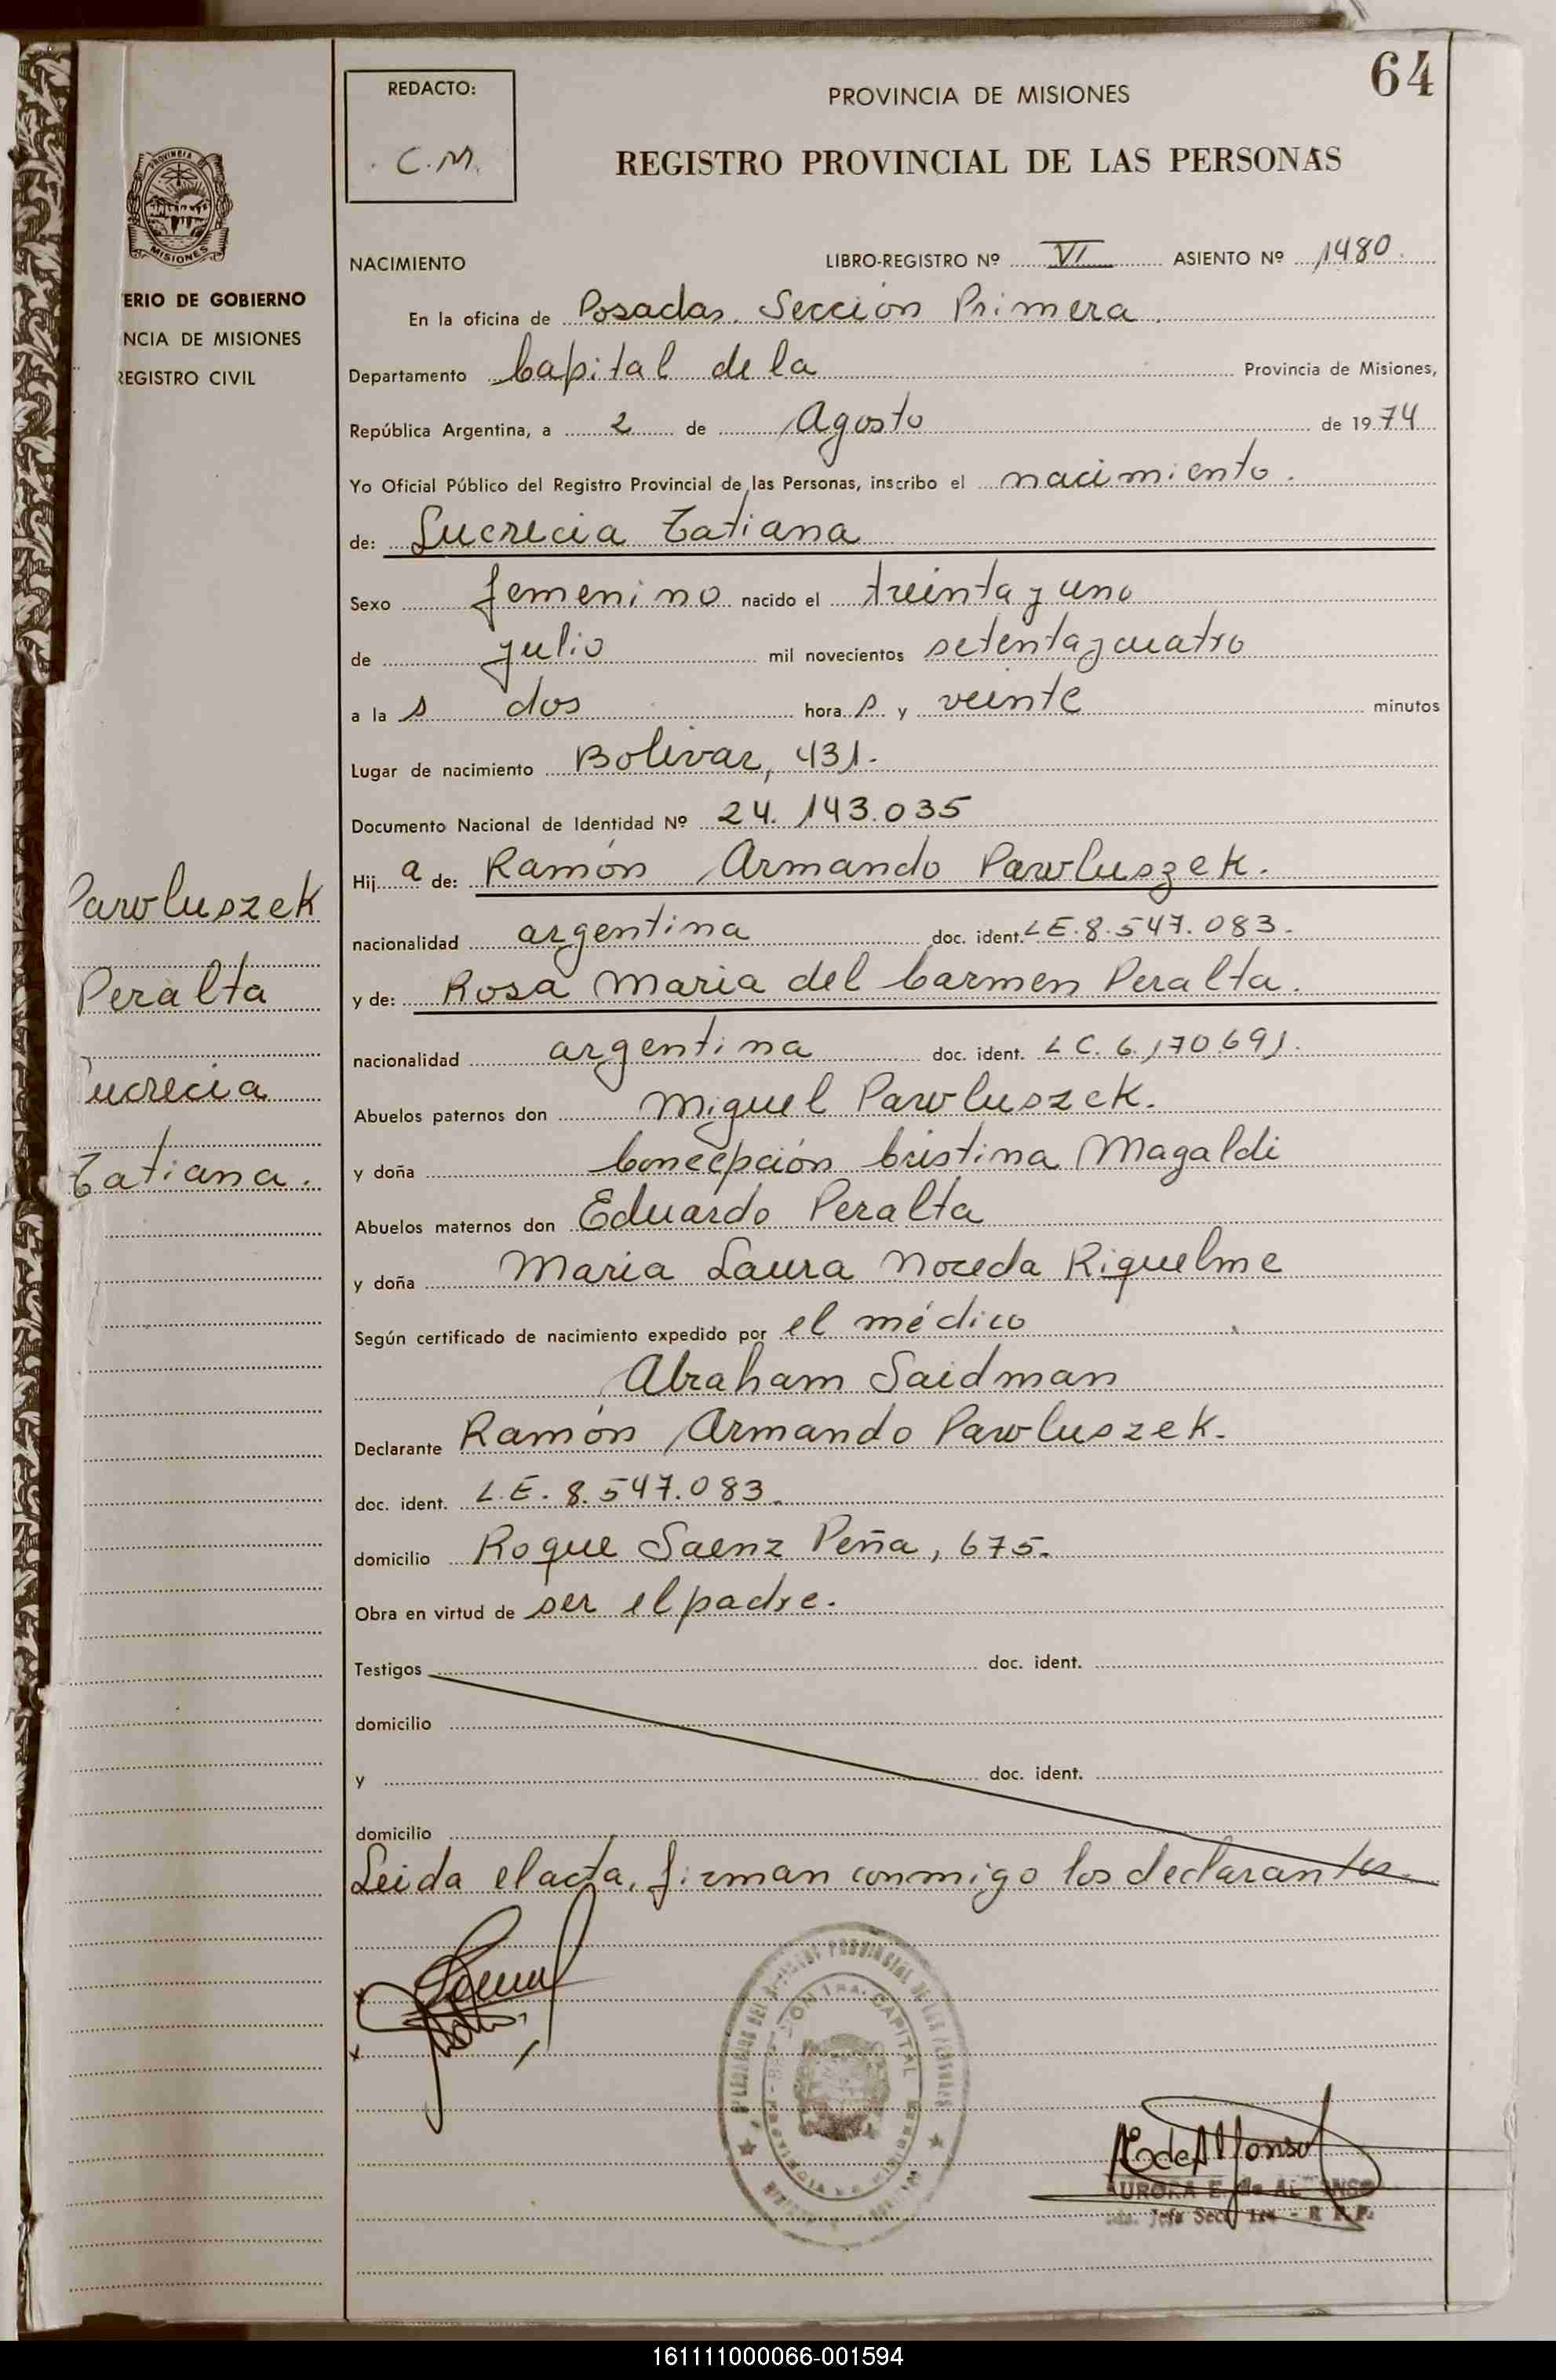 64
REDACTO:
C.M.
PROVINCIA DE MISIONES
REGISTRO PROVINCIAL DE LAS PERSONAS
PROVINCIA DE
MISIONES
ERIO DE GOBIERNO
NCIA DE MISIONES
REGISTRO CIVIL
NACIMIENTO LIBRO-REGISTRO Nº VI ASIENTO Nº 1480.
En la oficina de Posadas. Sección Primera.
Departamento Capital de la Provincia de Misiones,
República Argentina, a 2 de Agosto de 1974
Yo Oficial Público del Registro Provincial de las Personas, inscribo el nacimiento.
de: Lucrecia Tatiana
Sexo femenino nacido el treinta y uno
de julio mil novecientos setenta y cuatro
a la s dos hora s y veinte minutos
Lugar de nacimiento Bolivar, 431.
Documento Nacional de Identidad Nº 24.143.035
Hij a de: Ramón Armando Pawluszek.
nacionalidad argentina doc. ident. LE.8.547.083.
y de: Rosa Maria del Carmen Peralta.
nacionalidad argentina doc. ident. L C. 6.170.691.
Abuelos paternos don Miguel Pawluszek.
y doña Concepción Cristina Magaldi
Abuelos maternos don Eduardo Peralta
y doña Maria Laura Noceda Riquelme
Según certificado de nacimiento expedido por el médico
Abraham Saidman
Declarante Ramón Armando Pawluszek.
doc. ident. L.E. 8.547.083.
domicilio Roque Saenz Peña, 675.
Obra en virtud de ser el padre.
Testigos doc. ident.
domicilio
y doc. ident.
domicilio
Leida el acta, firman conmigo los declarantes.
Pawluszek
Peralta
ucrecia
Tatiana.
PROVINCIAL DE LAS PERSONAS
1ra. CAPITAL
AEdeAlfonso
AURORA E. de ALFONSO
Jefa Secc. 1ra - R P.P.
161111000066-001594